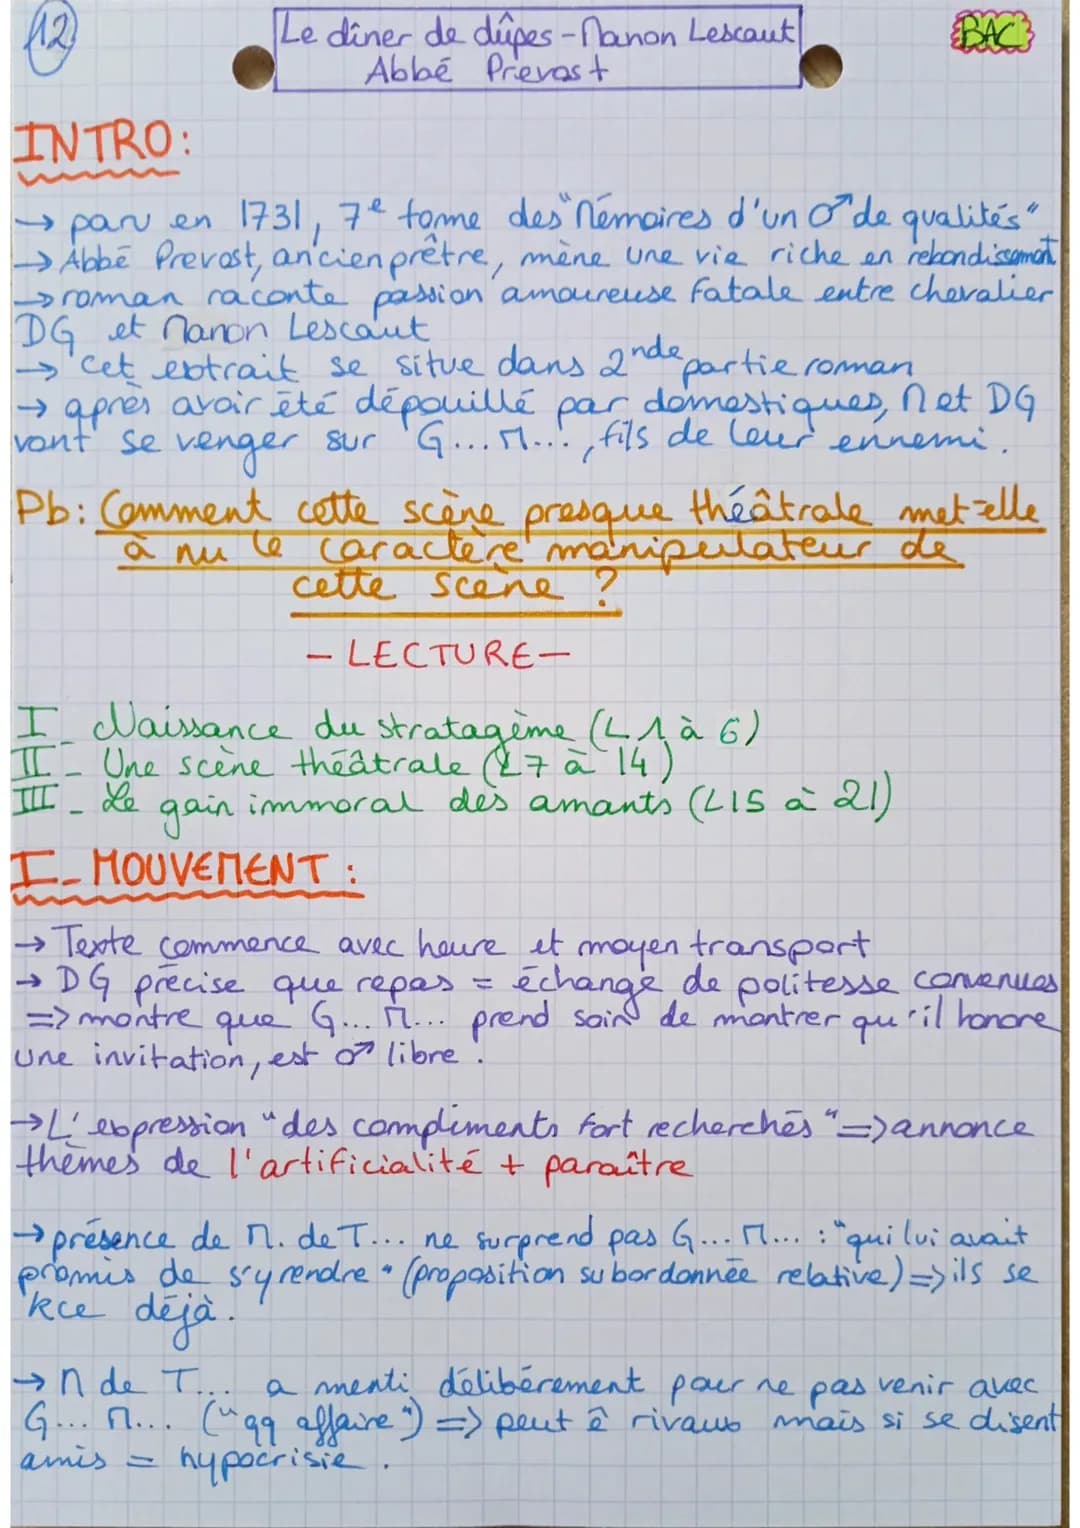 12
Le dîner de dûpes - Manon Lescaut
Abbé Prevost
BAC
INTRO:
→ paru en 1731, 7e tome des "Mémoires d'un ♂ de qualités"
→ Abbé Prevost, ancien prêtre, mène une vie riche en rebondissement
→ roman raconte passion amoureuse fatale entre chevalier
DG et Manon Lescaut
→ cet extrait se situe dans 2nde partie roman
→ après avoir été dépouillé par domestiques, M et DG
vont se venger sur G... M..., fils de leur ennemi.
Pb: Comment cette scène presque théâtrale met-elle
à nu le caractère manipulateur de
cette scène ?
- LECTURE -
I - Naissance du stratagème (L1 à 6)
II - Une scène théâtrale (L7 à 14)
III - Le gain immoral des amants (L15 à 21)
I - MOUVEMENT :
→ Texte commence avec heure et moyen transport
→ DG précise que repas = échange de politesse convenues
=> montre que G... M... prend soin de montrer qu'il honore
une invitation, est ♂ libre.
→ L'expression "des compliments fort recherchés" => annonce
thèmes de l'artificialité + paraître
→ présence de M. de T... ne surprend pas G... M... : "qui lui avait
promis de s'y rendre" (proposition subordonnée relative) => ils se
kce déjà.
→ M de T... a menti délibérement pour ne pas venir avec
G... M... ("qq affaire") => peut ê rivaux mais si se disent
amis = hypocrisie.